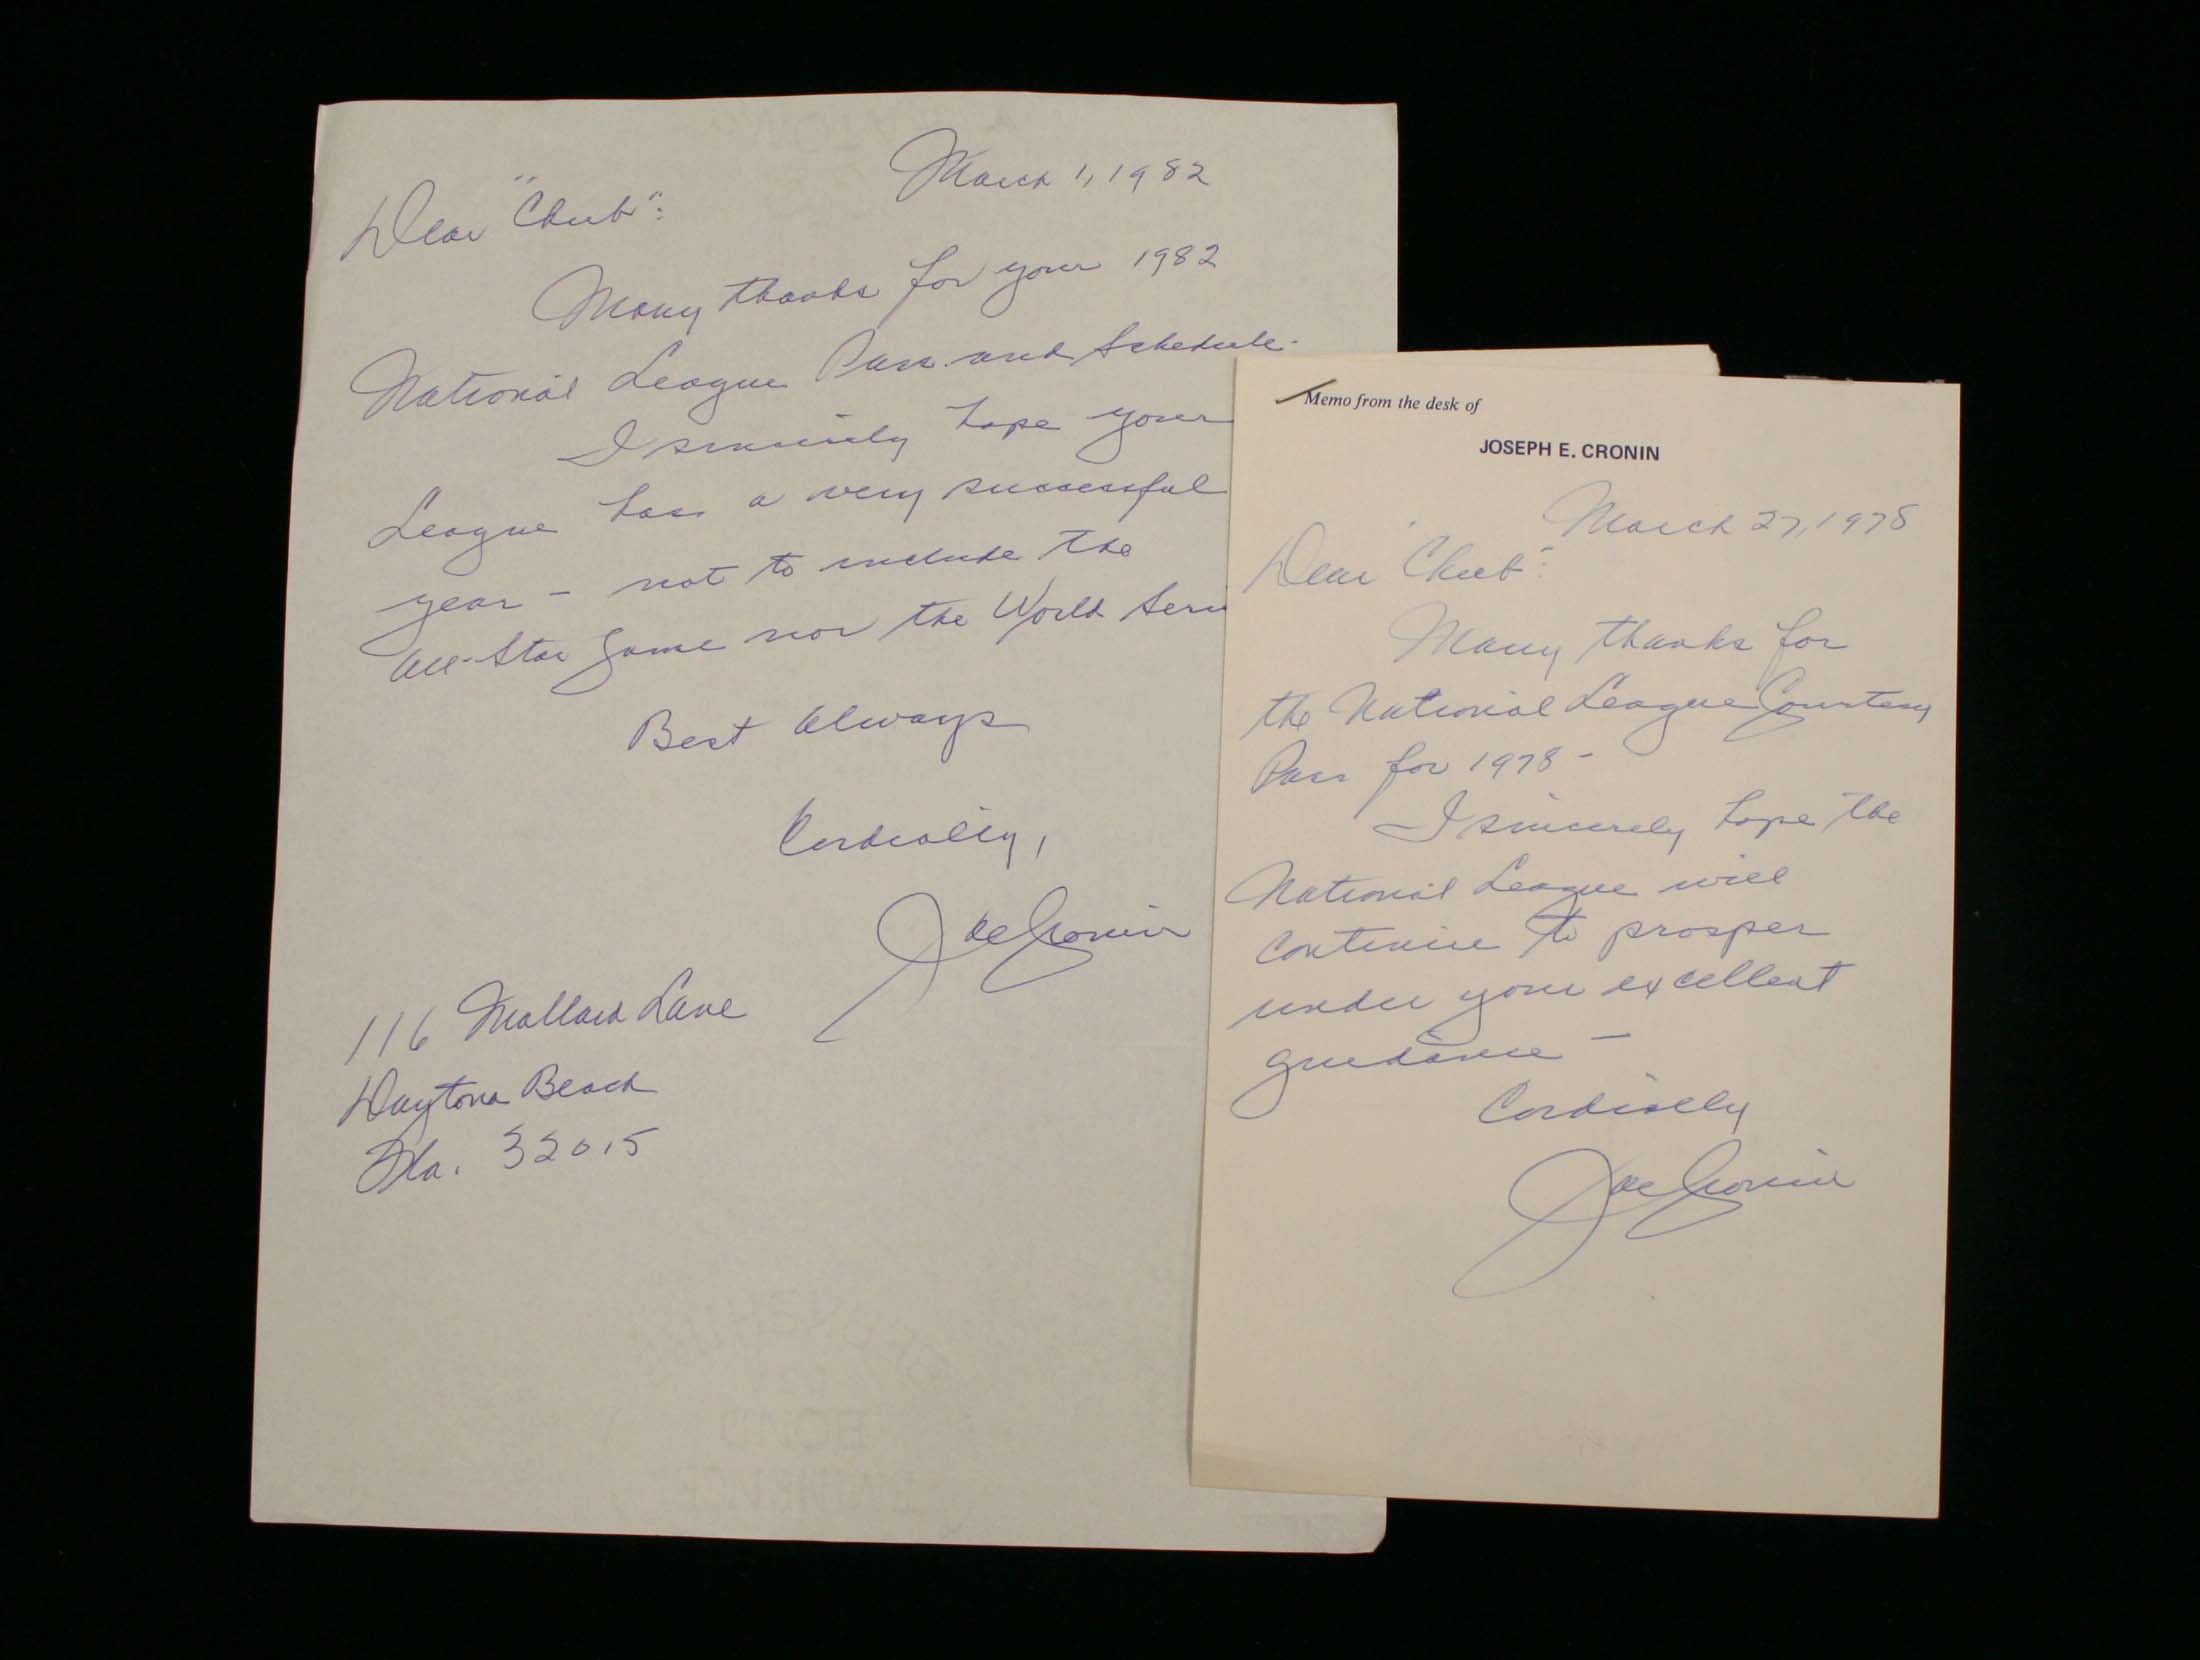 March 1, 1982
Dear "Chub":
Many thanks for your 1982
National League Pass and Schedule.
I sincerely hope your
League has a very successful
year - not to include the
All-Star Game nor the World Serie
Best Always
Cordially,
Joe Cronin
116 Mallard Lane
Daytona Beach
Fla. 32015
Memo from the desk of
JOSEPH E. CRONIN
March 27, 1978
Dear "Chub":
Many thanks for
the National League Courtesy
Pass for 1978 -
I sincerely hope the
National League will
continue to prosper
under your excellent
guidance -
Cordially
Joe Cronin
BOND